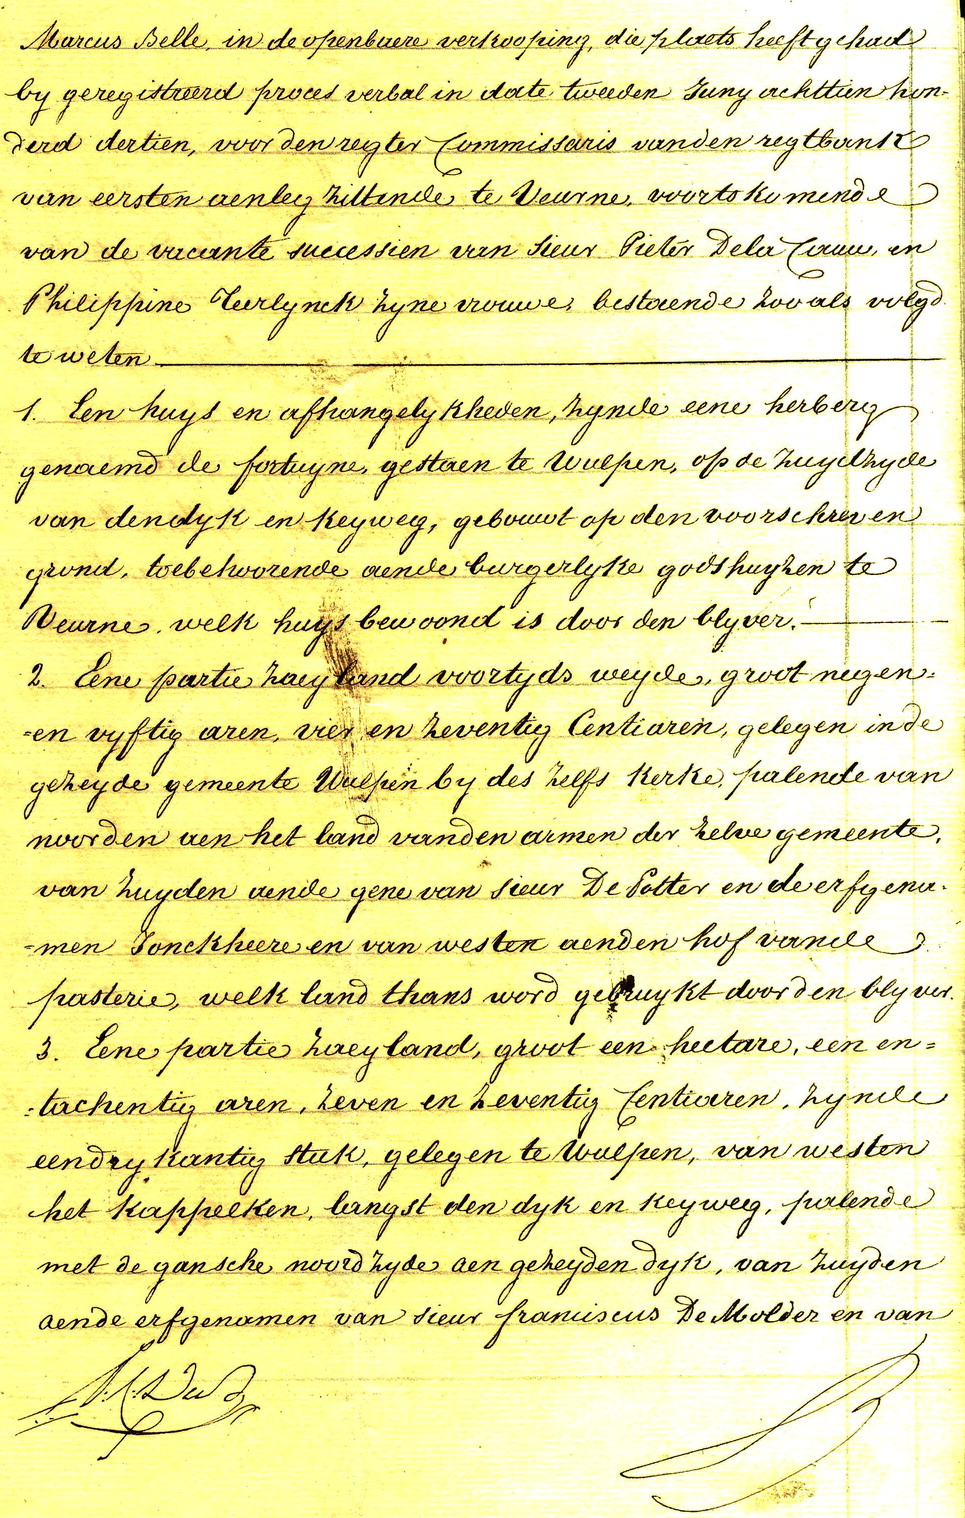 Marcus Belle, in de openbaere verkooping, die plaets heeft gehad
by geregistreerd proces verbal in date tweeden Juny achttien hon-
derd dertien, voor den regter Commissaris vanden regtbank
van eersten aenleg zittende te Veurne, voortskomende
van de vacante successien van sieur Pieter Dela Cauw, en
Philippine Teerlynck zyne vrouwe, bestaende zoo als volgd
te weten
1. Een huys en afhangelykheden, zynde eene herberg
genaemd de fortuyne, gestaen te Wulpen, op de zuydzyde
van den dyk en keyweg, gebouwt op den voorschreven
grond, toebehoorende aende burgerlyke godshuyzen te
Veurne, welk huys bewoond is door den blyver.
2. Eene partie zaeyland voortyds weyde, groot negen-
=en vyftig aren, vier en zeventig Centiaren, gelegen in de
gezeyde gemeente Wulpen by des zelfs kerke, palende van
noorden aen het land vanden armen der zelve gemeente,
van zuyden aende gene van sieur De Potter en de erfgena-
=men Jonckheere en van westen aenden hof vande
pasterie, welk land thans word gebruykt door den blyver.
3. Eene partie zaeyland, groot een hectare, een en=
=tachentig aren, zeven en zeventig Centiaren, zynde
een drykantig stuk, gelegen te Wulpen, van westen
het kappelken, langst den dyk en keyweg, palende
met de gansche noordzyde aen gezeyden dyk, van zuyden
aende erfgenamen van sieur franciscus De Molder en van